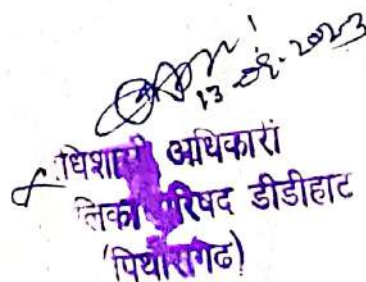 13.09.2023
धिशासी अधिकारी
लिका परिषद डीडीहाट
(पिथौरागढ)